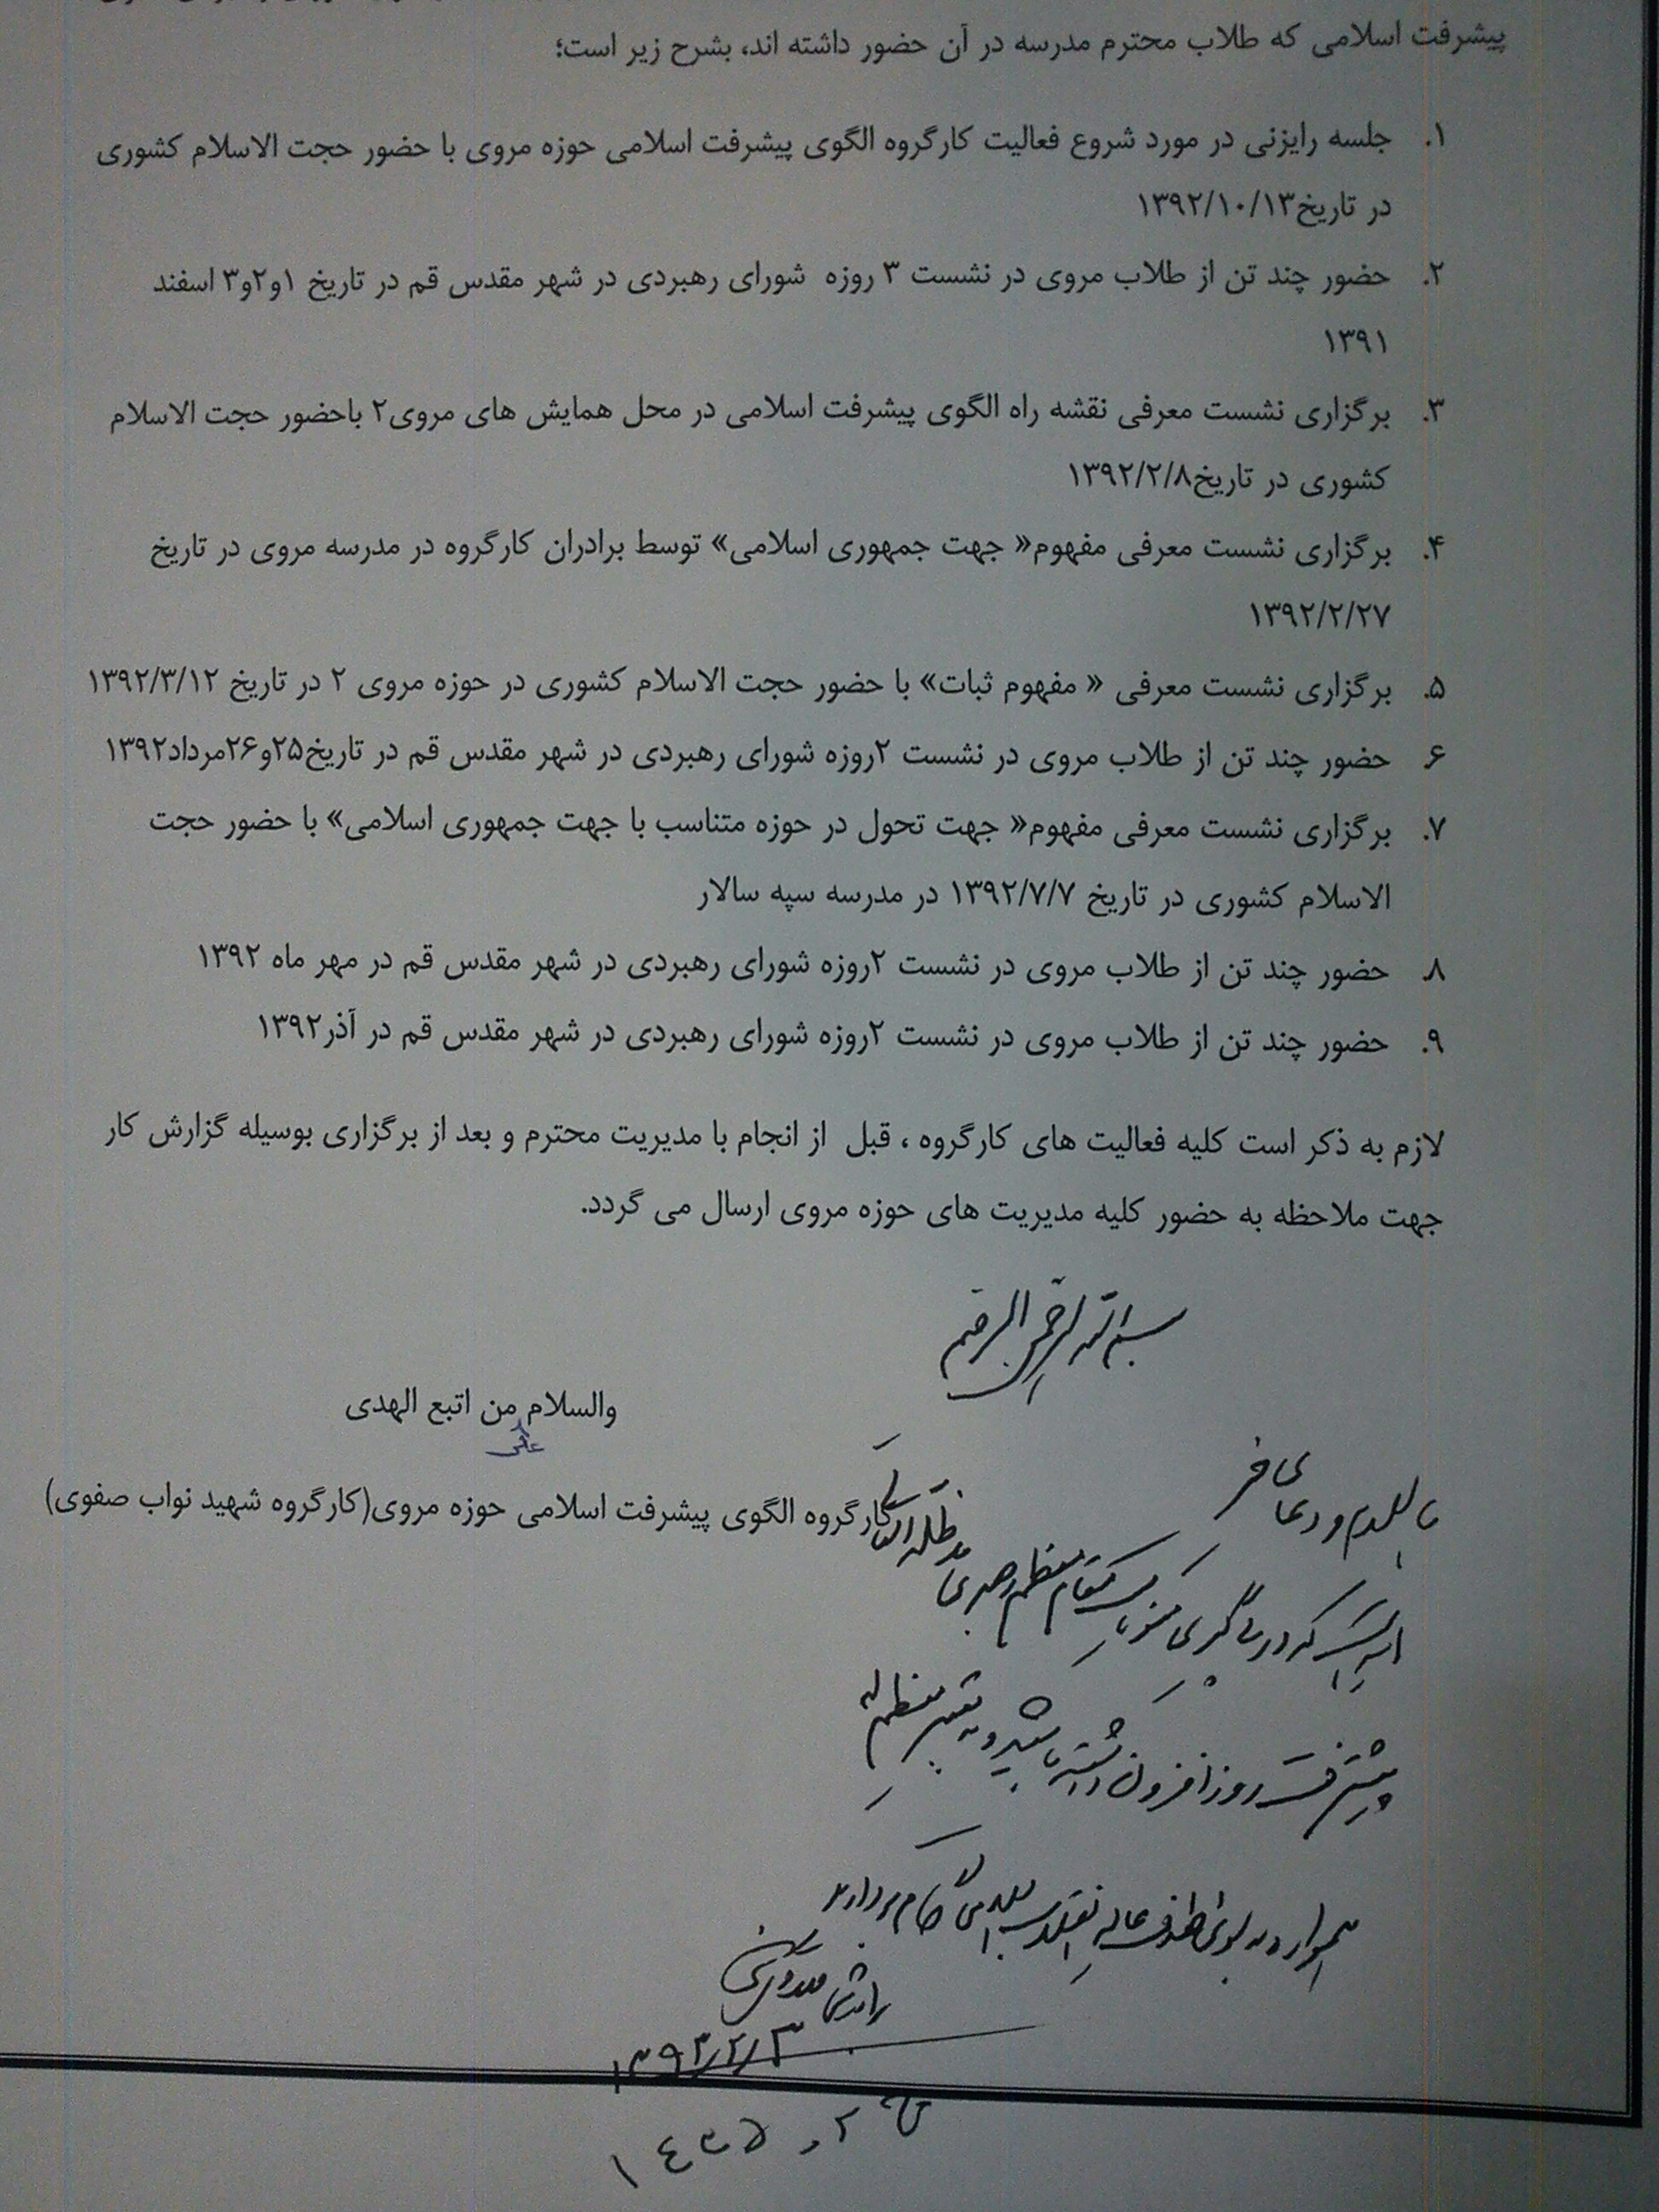 پیشرفت اسلامی که طلاب محترم مدرسه در آن حضور داشته اند، بشرح زیر است؛
۱. جلسه رایزنی در مورد شروع فعالیت کارگروه الگوی پیشرفت اسلامی حوزه مروی با حضور حجت الاسلام کشوری
در تاریخ۱۳۹۲/۱۰/۱۳
۲. حضور چند تن از طلاب مروی در نشست ۳ روزه شورای رهبردی در شهر مقدس قم در تاریخ ۱و۲و۳ اسفند
۱۳۹۱
۳. برگزاری نشست معرفی نقشه راه الگوی پیشرفت اسلامی در محل همایش های مروی۲ باحضور حجت الاسلام
کشوری در تاریخ۱۳۹۲/۲/۸
۴. برگزاری نشست معرفی مفهوم« جهت جمهوری اسلامی» توسط برادران کارگروه در مدرسه مروی در تاریخ
۱۳۹۲/۲/۲۷
۵. برگزاری نشست معرفی « مفهوم ثبات» با حضور حجت الاسلام کشوری در حوزه مروی ۲ در تاریخ ۱۳۹۲/۳/۱۲
۶. حضور چند تن از طلاب مروی در نشست ۲روزه شورای رهبردی در شهر مقدس قم در تاریخ۲۵و۲۶مرداد۱۳۹۲
۷. برگزاری نشست معرفی مفهوم« جهت تحول در حوزه متناسب با جهت جمهوری اسلامی» با حضور حجت
الاسلام کشوری در تاریخ ۱۳۹۲/۷/۷ در مدرسه سپه سالار
۸. حضور چند تن از طلاب مروی در نشست ۲روزه شورای رهبردی در شهر مقدس قم در مهر ماه ۱۳۹۲
۹. حضور چند تن از طلاب مروی در نشست ۲روزه شورای رهبردی در شهر مقدس قم در آذر۱۳۹۲
لازم به ذکر است کلیه فعالیت های کارگروه ، قبل از انجام با مدیریت محترم و بعد از برگزاری بوسیله گزارش کار
جهت ملاحظه به حضور کلیه مدیریت های حوزه مروی ارسال می گردد.
بسم الله الرحمن الرحیم
والسلام من اتبع الهدی
علی
کارگروه الگوی پیشرفت اسلامی حوزه مروی(کارگروه شهید نواب صفوی)
با سلام و دعای خیر
امید است که در پیگیری منویات مقام معظم رهبری مد ظله العالی
پیشرفت روزافزون داشته باشید و به تعبیر معظم له
همواره به سوی اهداف عالیه انقلاب اسلامی گام بردارید
۱۳۹۳/۲/۳